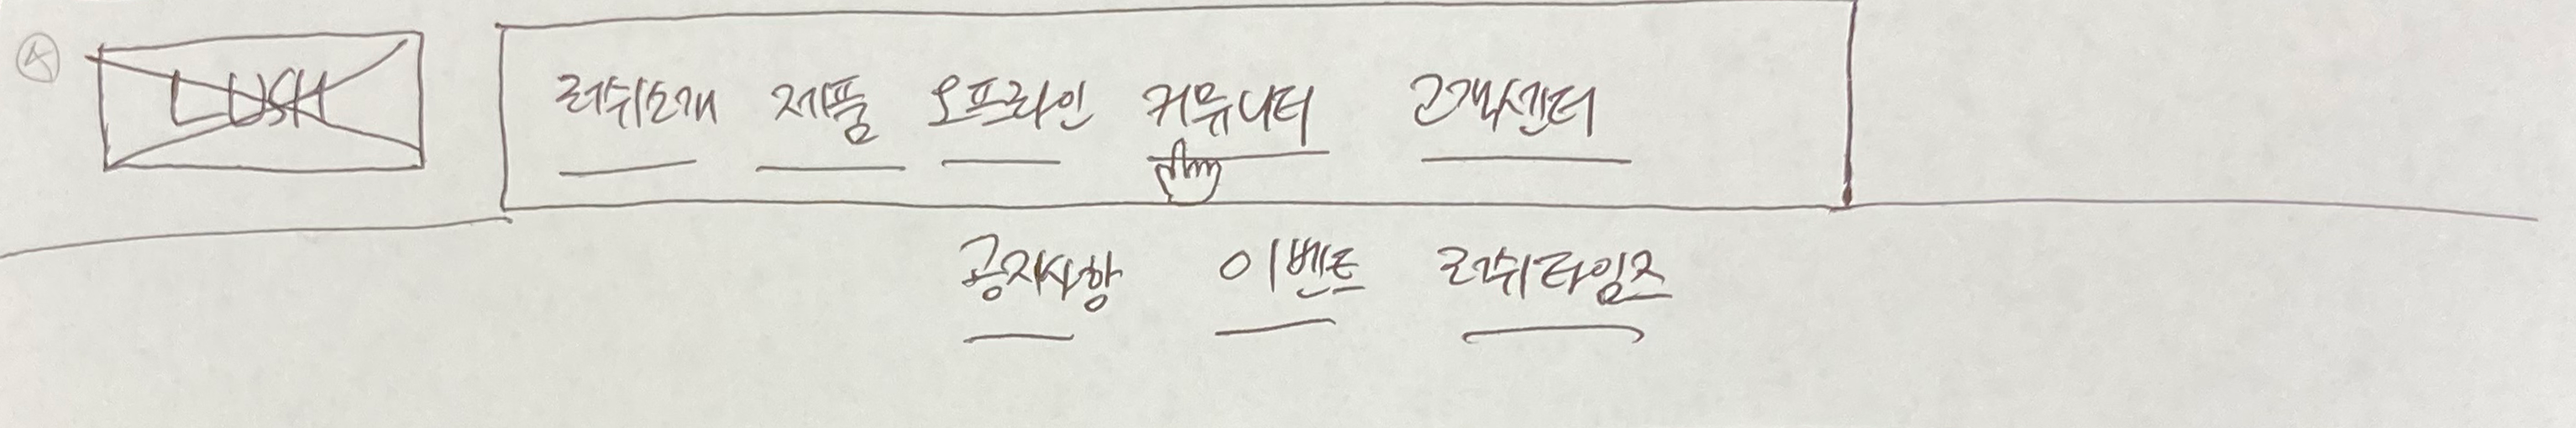 LUSH 러쉬소개 제품 오프라인 커뮤니티 고객센터
공지사항 이벤트 러쉬타임즈